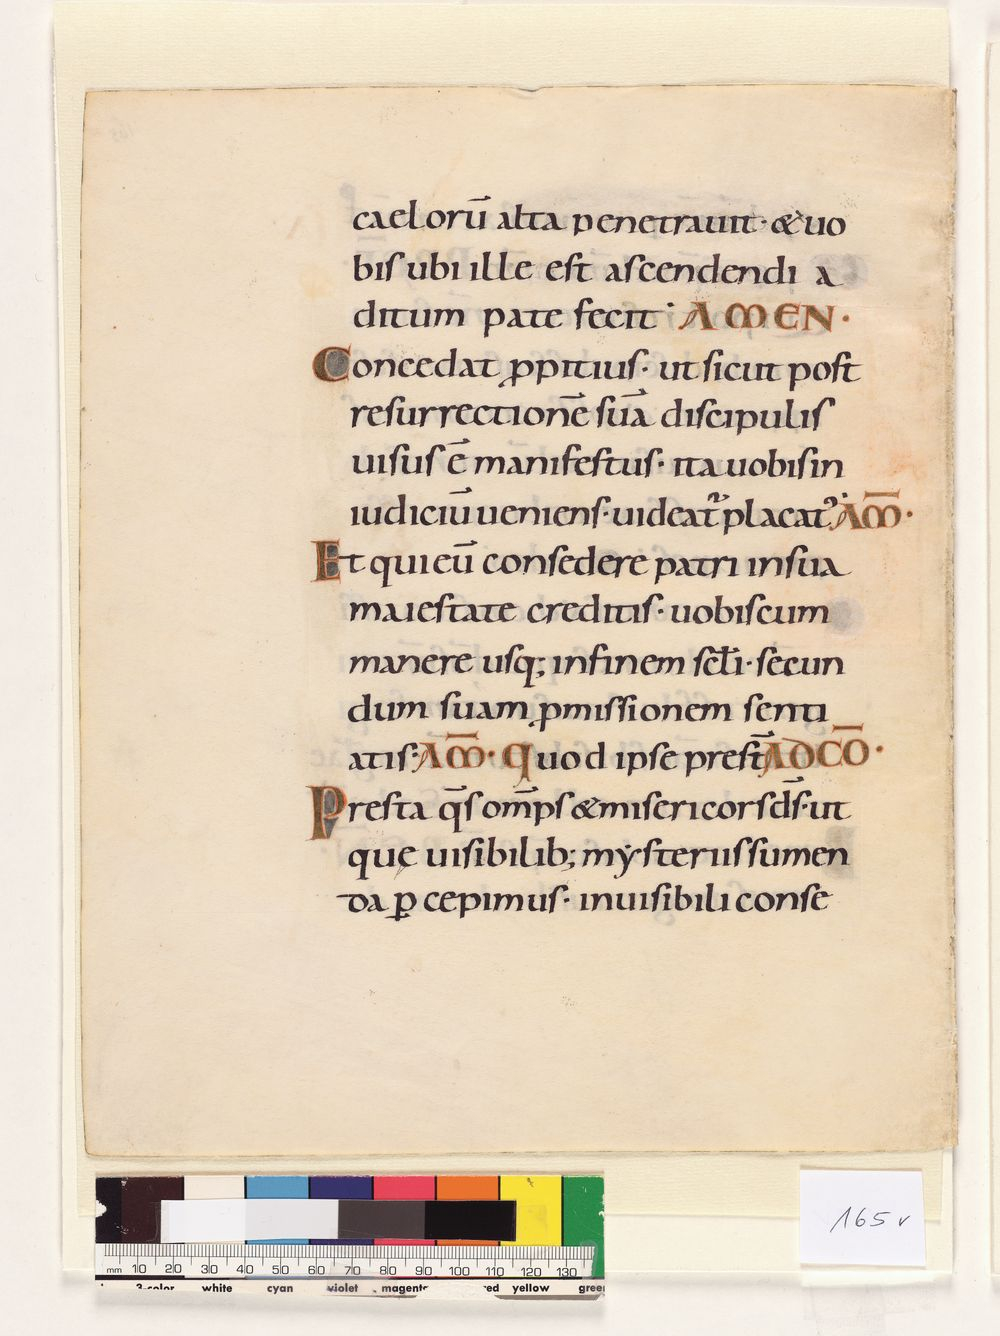 caeloru̅ alta penetrauit· & uo
bis ubi ille est ascendendi a
ditum pate fecit· AMEN·
Concedat ꝓpitius· ut sicut post
resurrectione̅ sua̅ discipulis
uisus e̅ manifestus· ita uobis in
iudiciu̅ ueniens· uideat᷑ placat᷒· AM̅·
Et qui eu̅ consedere patri in sua
maiestate creditis· uobiscum
manere usq; in finem sc̅l̅i· secun
dum suam ꝓmissionem senti
atis· AM̅· Quod ipse prest̅ AD CO̅·
Presta q̅s om̅ps & misericors d̅s· ut
quę uisibilib; mẏsteriis sumen
da ꝑcepimus· inuisibili conse
165 v
mm 10 20 30 40 50 60 70 80 90 100 110 120 130
3-color white cyan violet magenta red yellow green